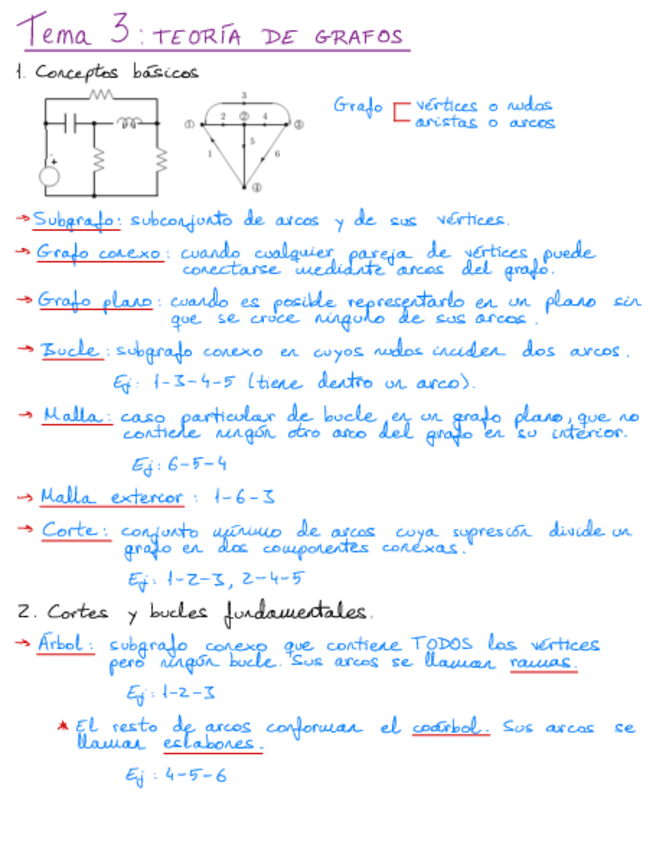 Tema 3: TEORÍA DE GRAFOS
1. Conceptos básicos
Grafo vértices o nudos
aristas o arcos
+
3
① 2 ② 4 ③
5
1 6
④
→ Subgrafo: subconjunto de arcos y de sus vértices.
→ Grafo conexo: cuando cualquier pareja de vértices puede
conectarse mediante arcos del grafo.
→ Grafo plano: cuando es posible representarlo en un plano sin
que se cruce ninguno de sus arcos.
→ Bucle: subgrafo conexo en cuyos nudos inciden dos arcos.
Ej: 1-3-4-5 (tiene dentro un arco).
→ Malla: caso particular de bucle, en un grafo plano, que no
contiene ningún otro arco del grafo en su interior.
Ej: 6-5-4
→ Malla exterior: 1-6-3
→ Corte: conjunto mínimo de arcos cuya supresión divide un
grafo en dos componentes conexas.
Ej: 1-2-3, 2-4-5
2. Cortes y bucles fundamentales.
→ Árbol: subgrafo conexo que contiene TODOS los vértices
pero ningún bucle. Sus arcos se llaman ramas.
Ej: 1-2-3
* El resto de arcos conforman el coárbol. Sus arcos se
llaman eslabones.
Ej: 4-5-6